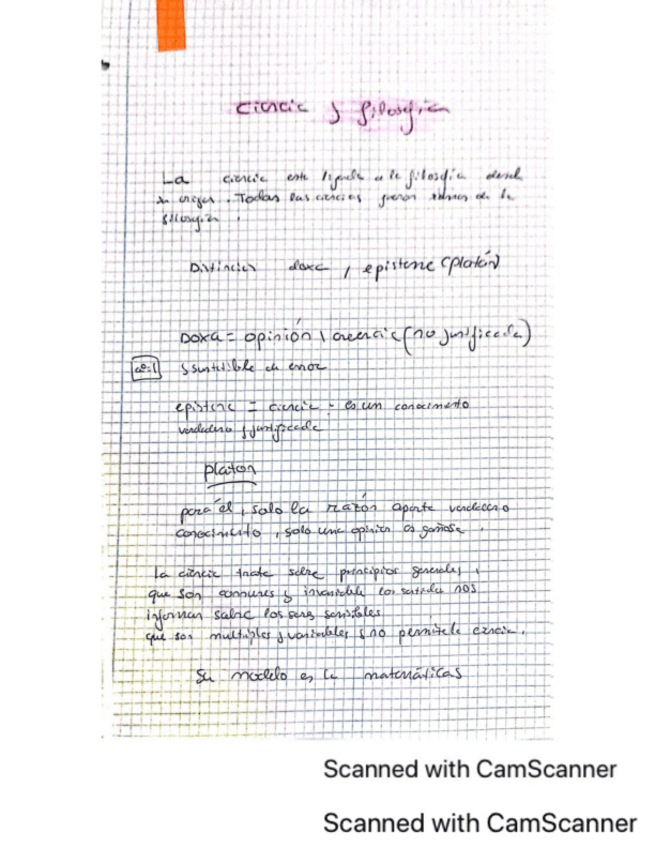 Ciencia y filosofía
La ciencia esta ligada a la filosofía desde
su origen. Todas las ciencias fueron ramas de la
filosofía.
Distinción doxa / episteme (Platón)
Doxa = opinión \ creencia (no justificada)
y suceptible de error
episteme = ciencia - es un conocimiento
verdadero y justificado
Platon
para él, solo la razón aporta verdadero
conocimiento, solo una opinión
La ciencia trata sobre principios generales,
que son comunes y invariable los sentidos nos
informan sobre los seres sensibles
que son multiples y variables y no permite la ciencia.
Su modelo es la matemáticas
Scanned with CamScanner
Scanned with CamScanner